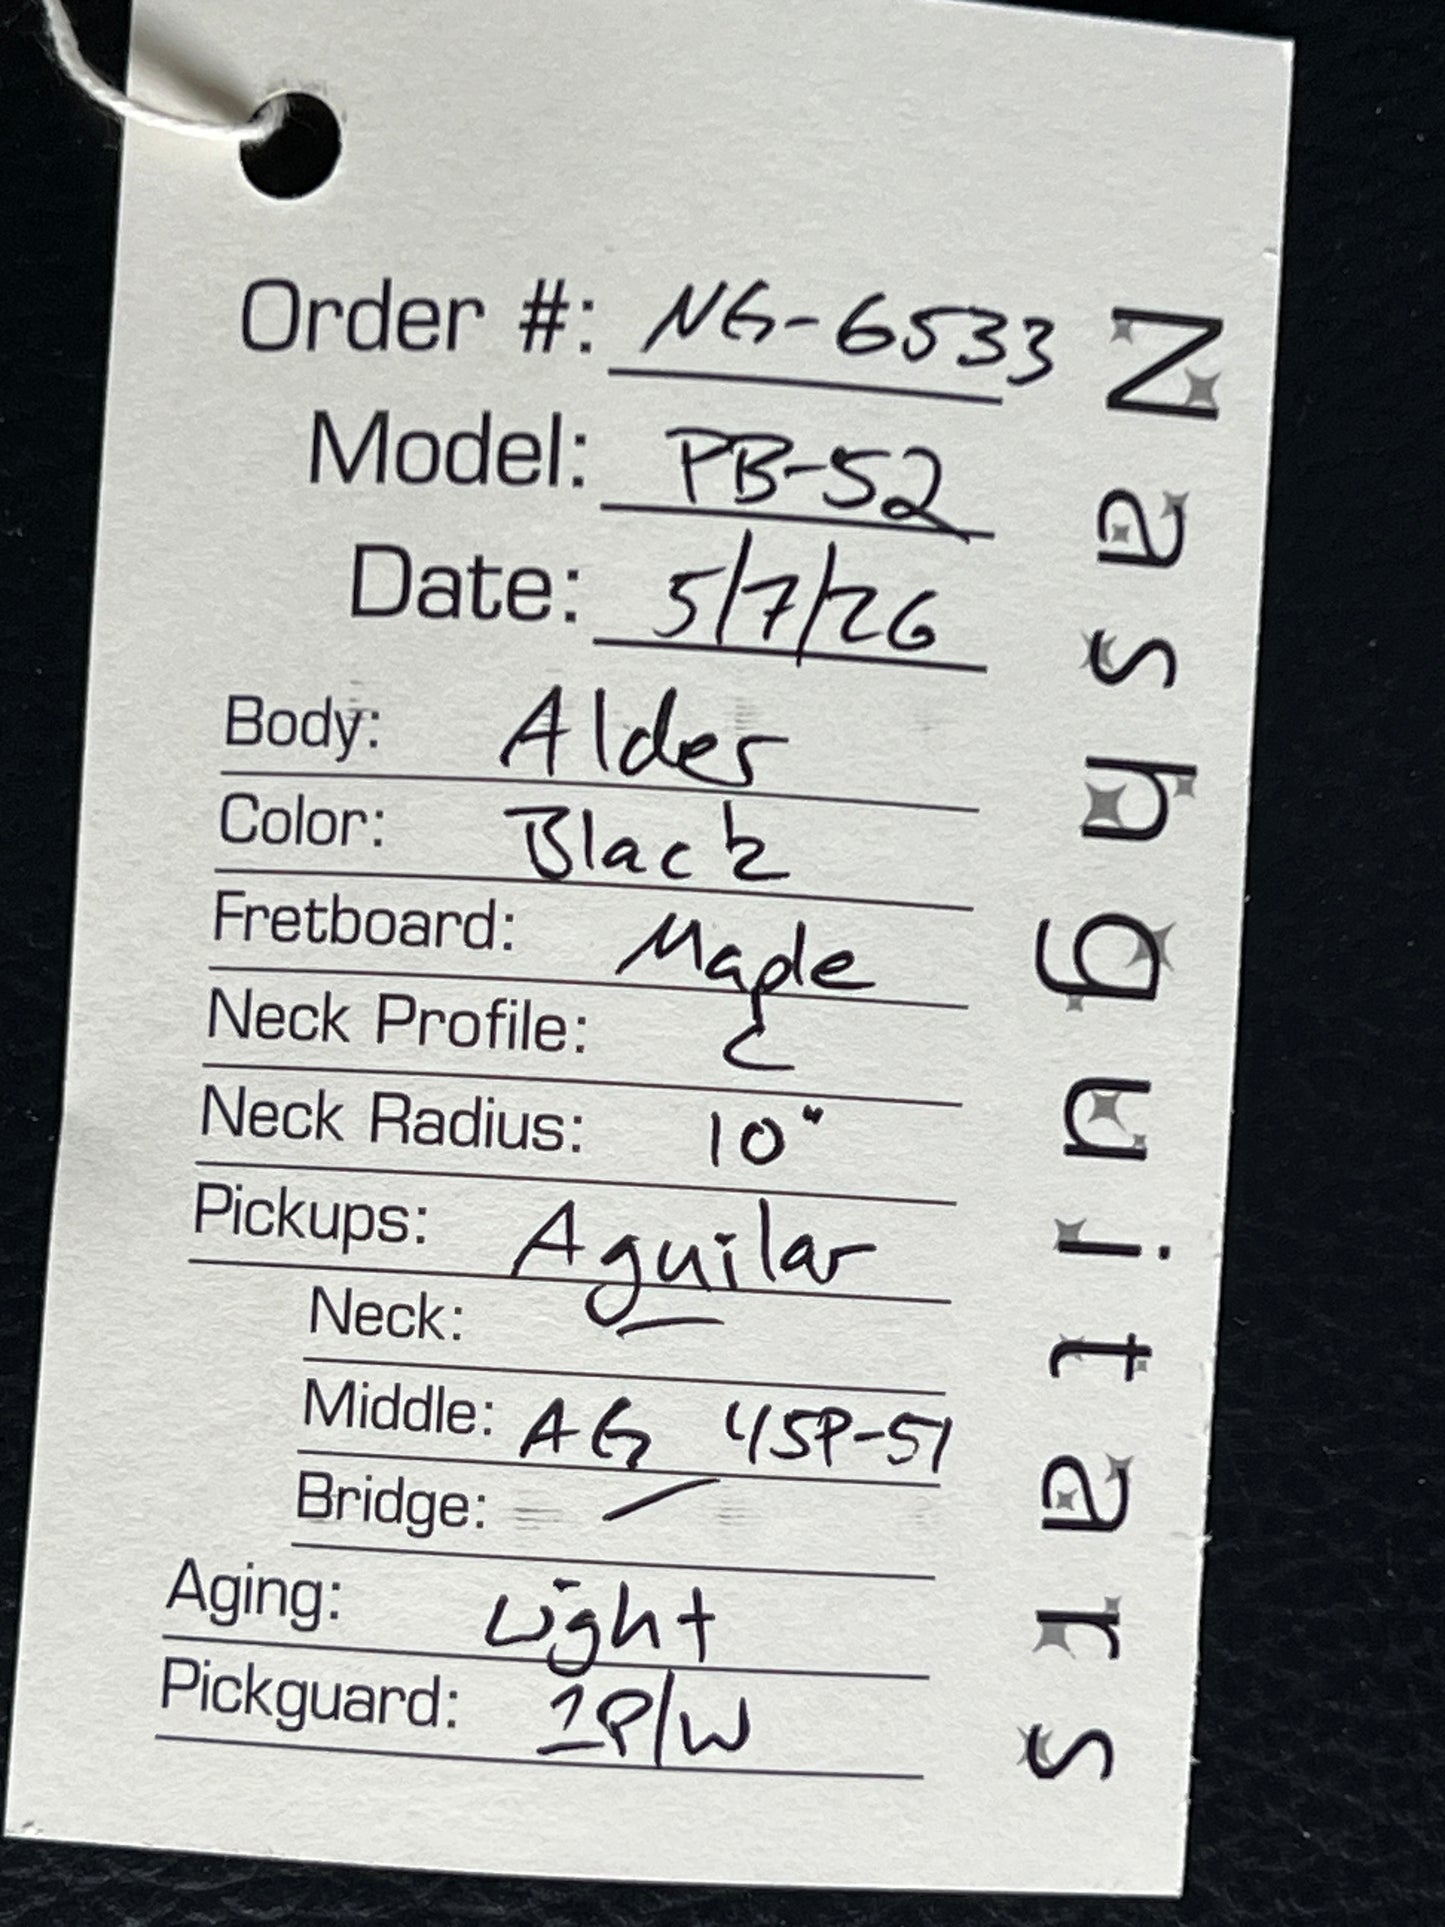 Order #: NG-6533
Model: PB-52
Date: 5/7/26
Body: Alder
Color: Black
Fretboard: Maple
Neck Profile: C
Neck Radius: 10"
Pickups: Aguilar
Neck:
Middle: AG 4SP-51
Bridge: —
Aging: Light
Pickguard: 1P/W
Nashguitars